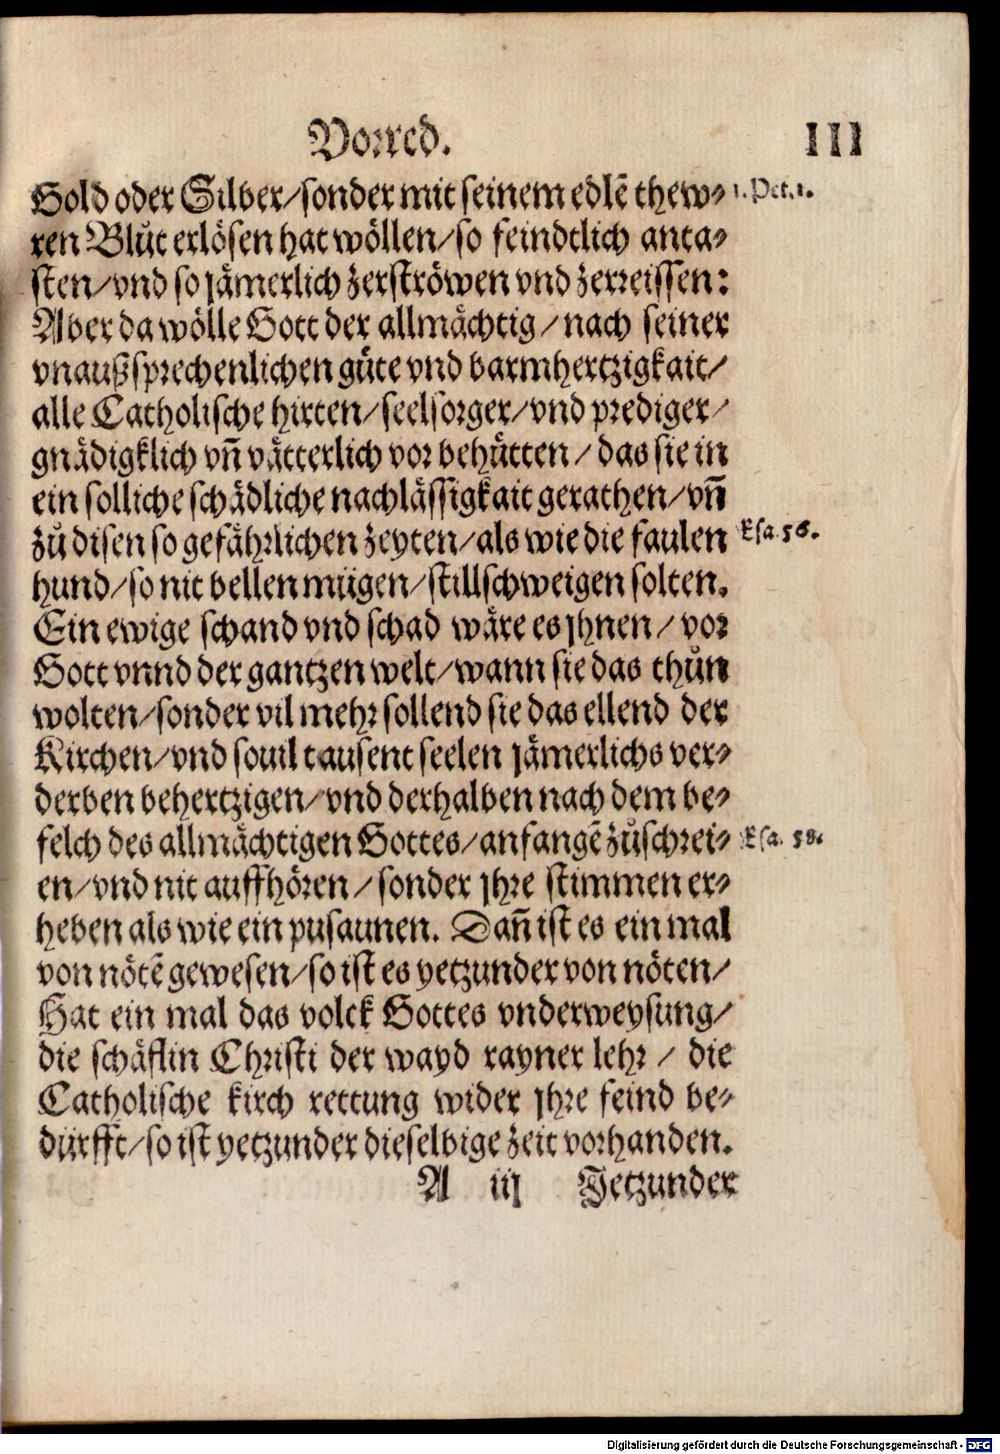 Vorred. III
Gold oder Silber/sonder mit seinem edlē thew⸗ 1. Pet. 1.
ren Blůt erlösen hat wöllen/so feindtlich anta⸗
sten/vnd so jämerlich zerströwen vnd zerreissen:
Aber da wölle Gott der allmächtig/nach seiner
vnaußsprechenlichen güte vnd barmhertzigkait/
alle Catholische hirten/seelsorger/vnd prediger/
gnädigklich vñ vätterlich vor behütten/das sie in
ein solliche schädliche nachlässigkait gerathen/vñ
zů disen so gefährlichen zeyten/als wie die faulen Esa. 56.
hund/so nit bellen mügen/stillschweigen solten.
Ein ewige schand vnd schad wäre es jhnen/vor
Gott vnnd der gantzen welt/wann sie das thůn
wolten/sonder vil mehr sollend sie das ellend der
Kirchen/vnd souil tausent seelen jämerlichs ver⸗
derben behertzigen/vnd derhalben nach dem be⸗
felch des allmächtigen Gottes/anfangē zůschrei⸗ Esa. 58.
en/vnd nit auffhören/sonder jhre stimmen er⸗
heben als wie ein pusaunen. Dañ ist es ein mal
von nötē gewesen/so ist es yetzunder von nöten/
Hat ein mal das volck Gottes vnderweysung/
die schäflin Christi der wayd rayner lehr/die
Catholische kirch rettung wider jhre feind be⸗
dürfft/so ist yetzunder dieselbige zeit vorhanden.
A iij Jetzunder
Digitalisierung gefördert durch die Deutsche Forschungsgemeinschaft - DFG